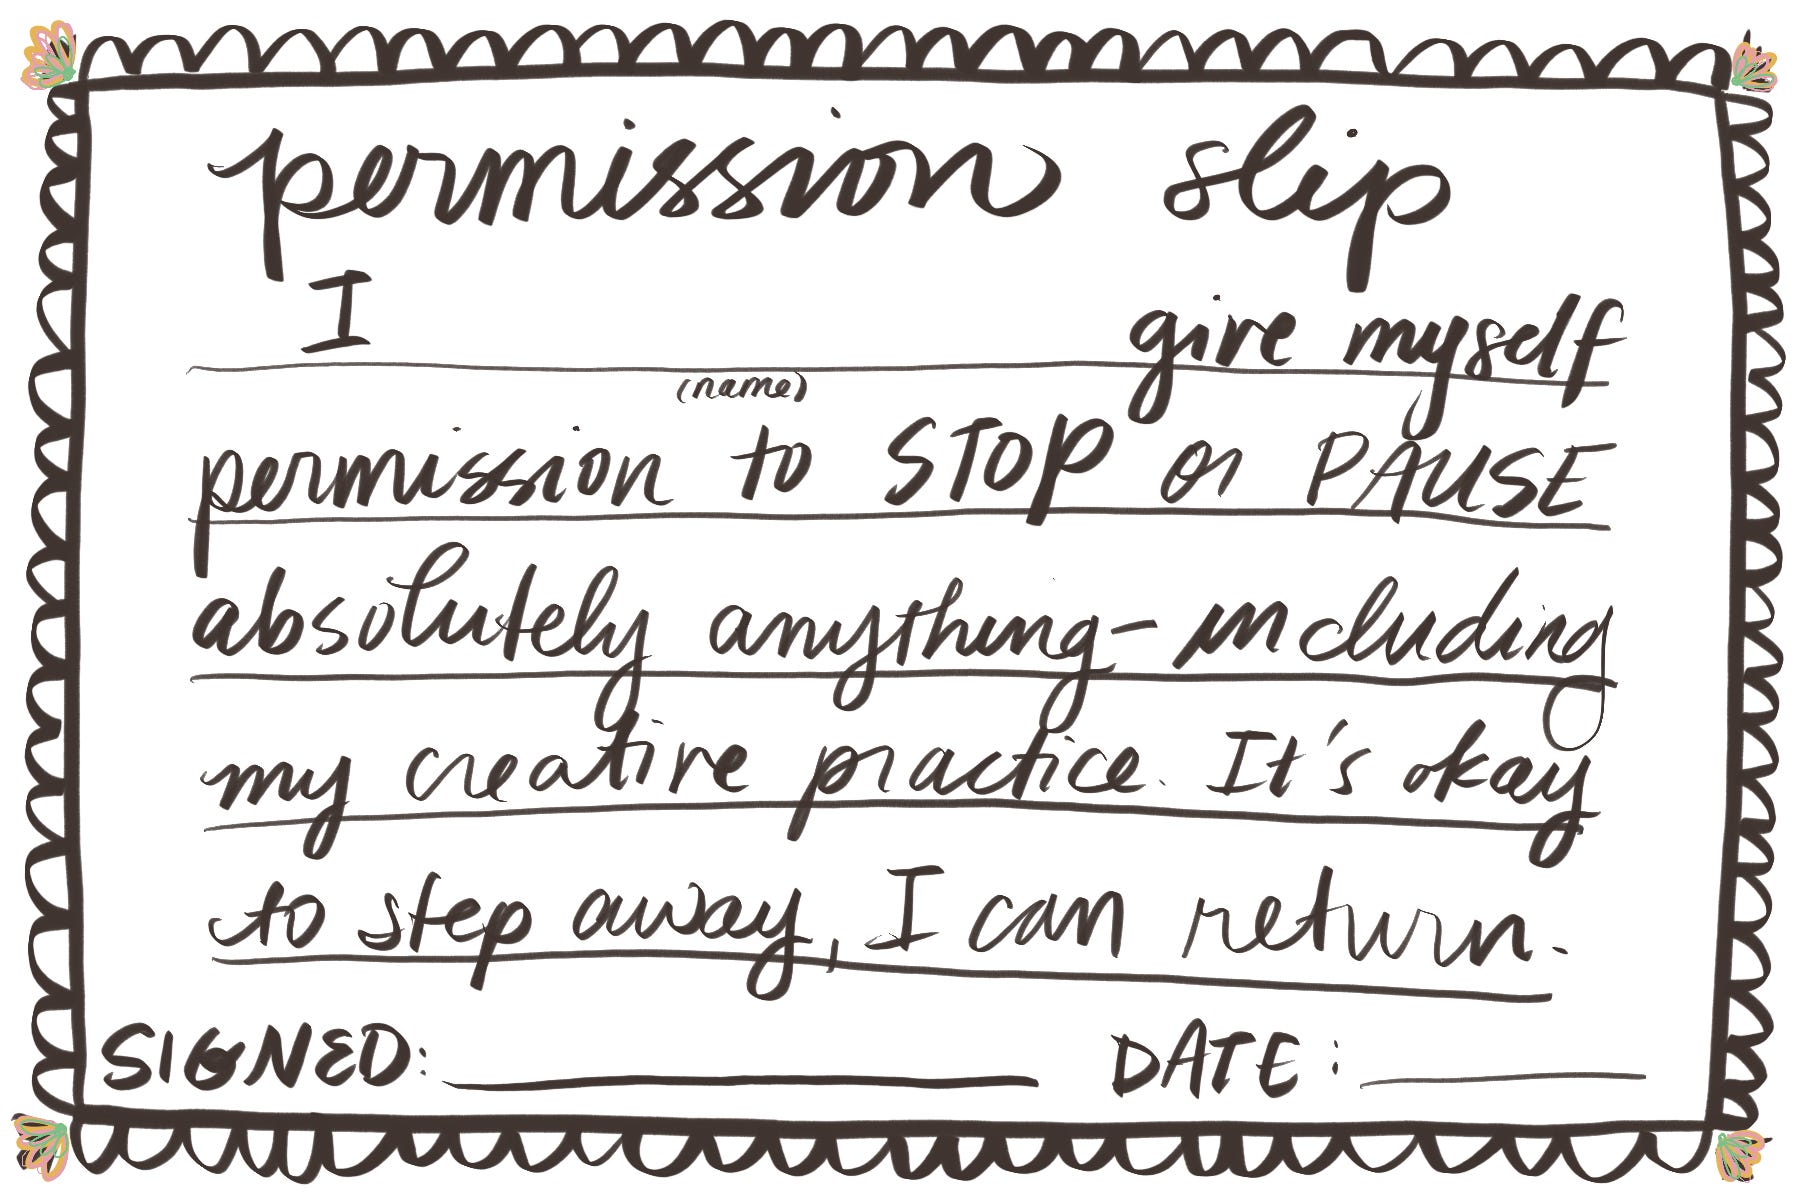 permission slip
I give myself
(name)
permission to STOP or PAUSE
absolutely anything - including
my creative practice. It's okay
to step away, I can return.
SIGNED: DATE: